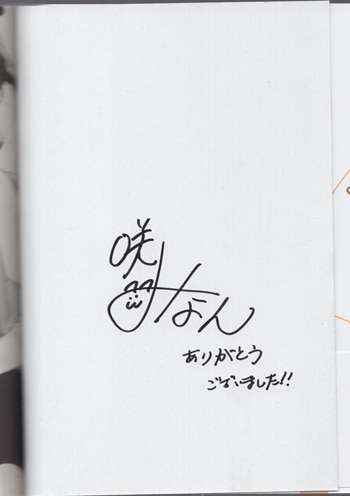 咲
なん
ありがとう
ございました!!